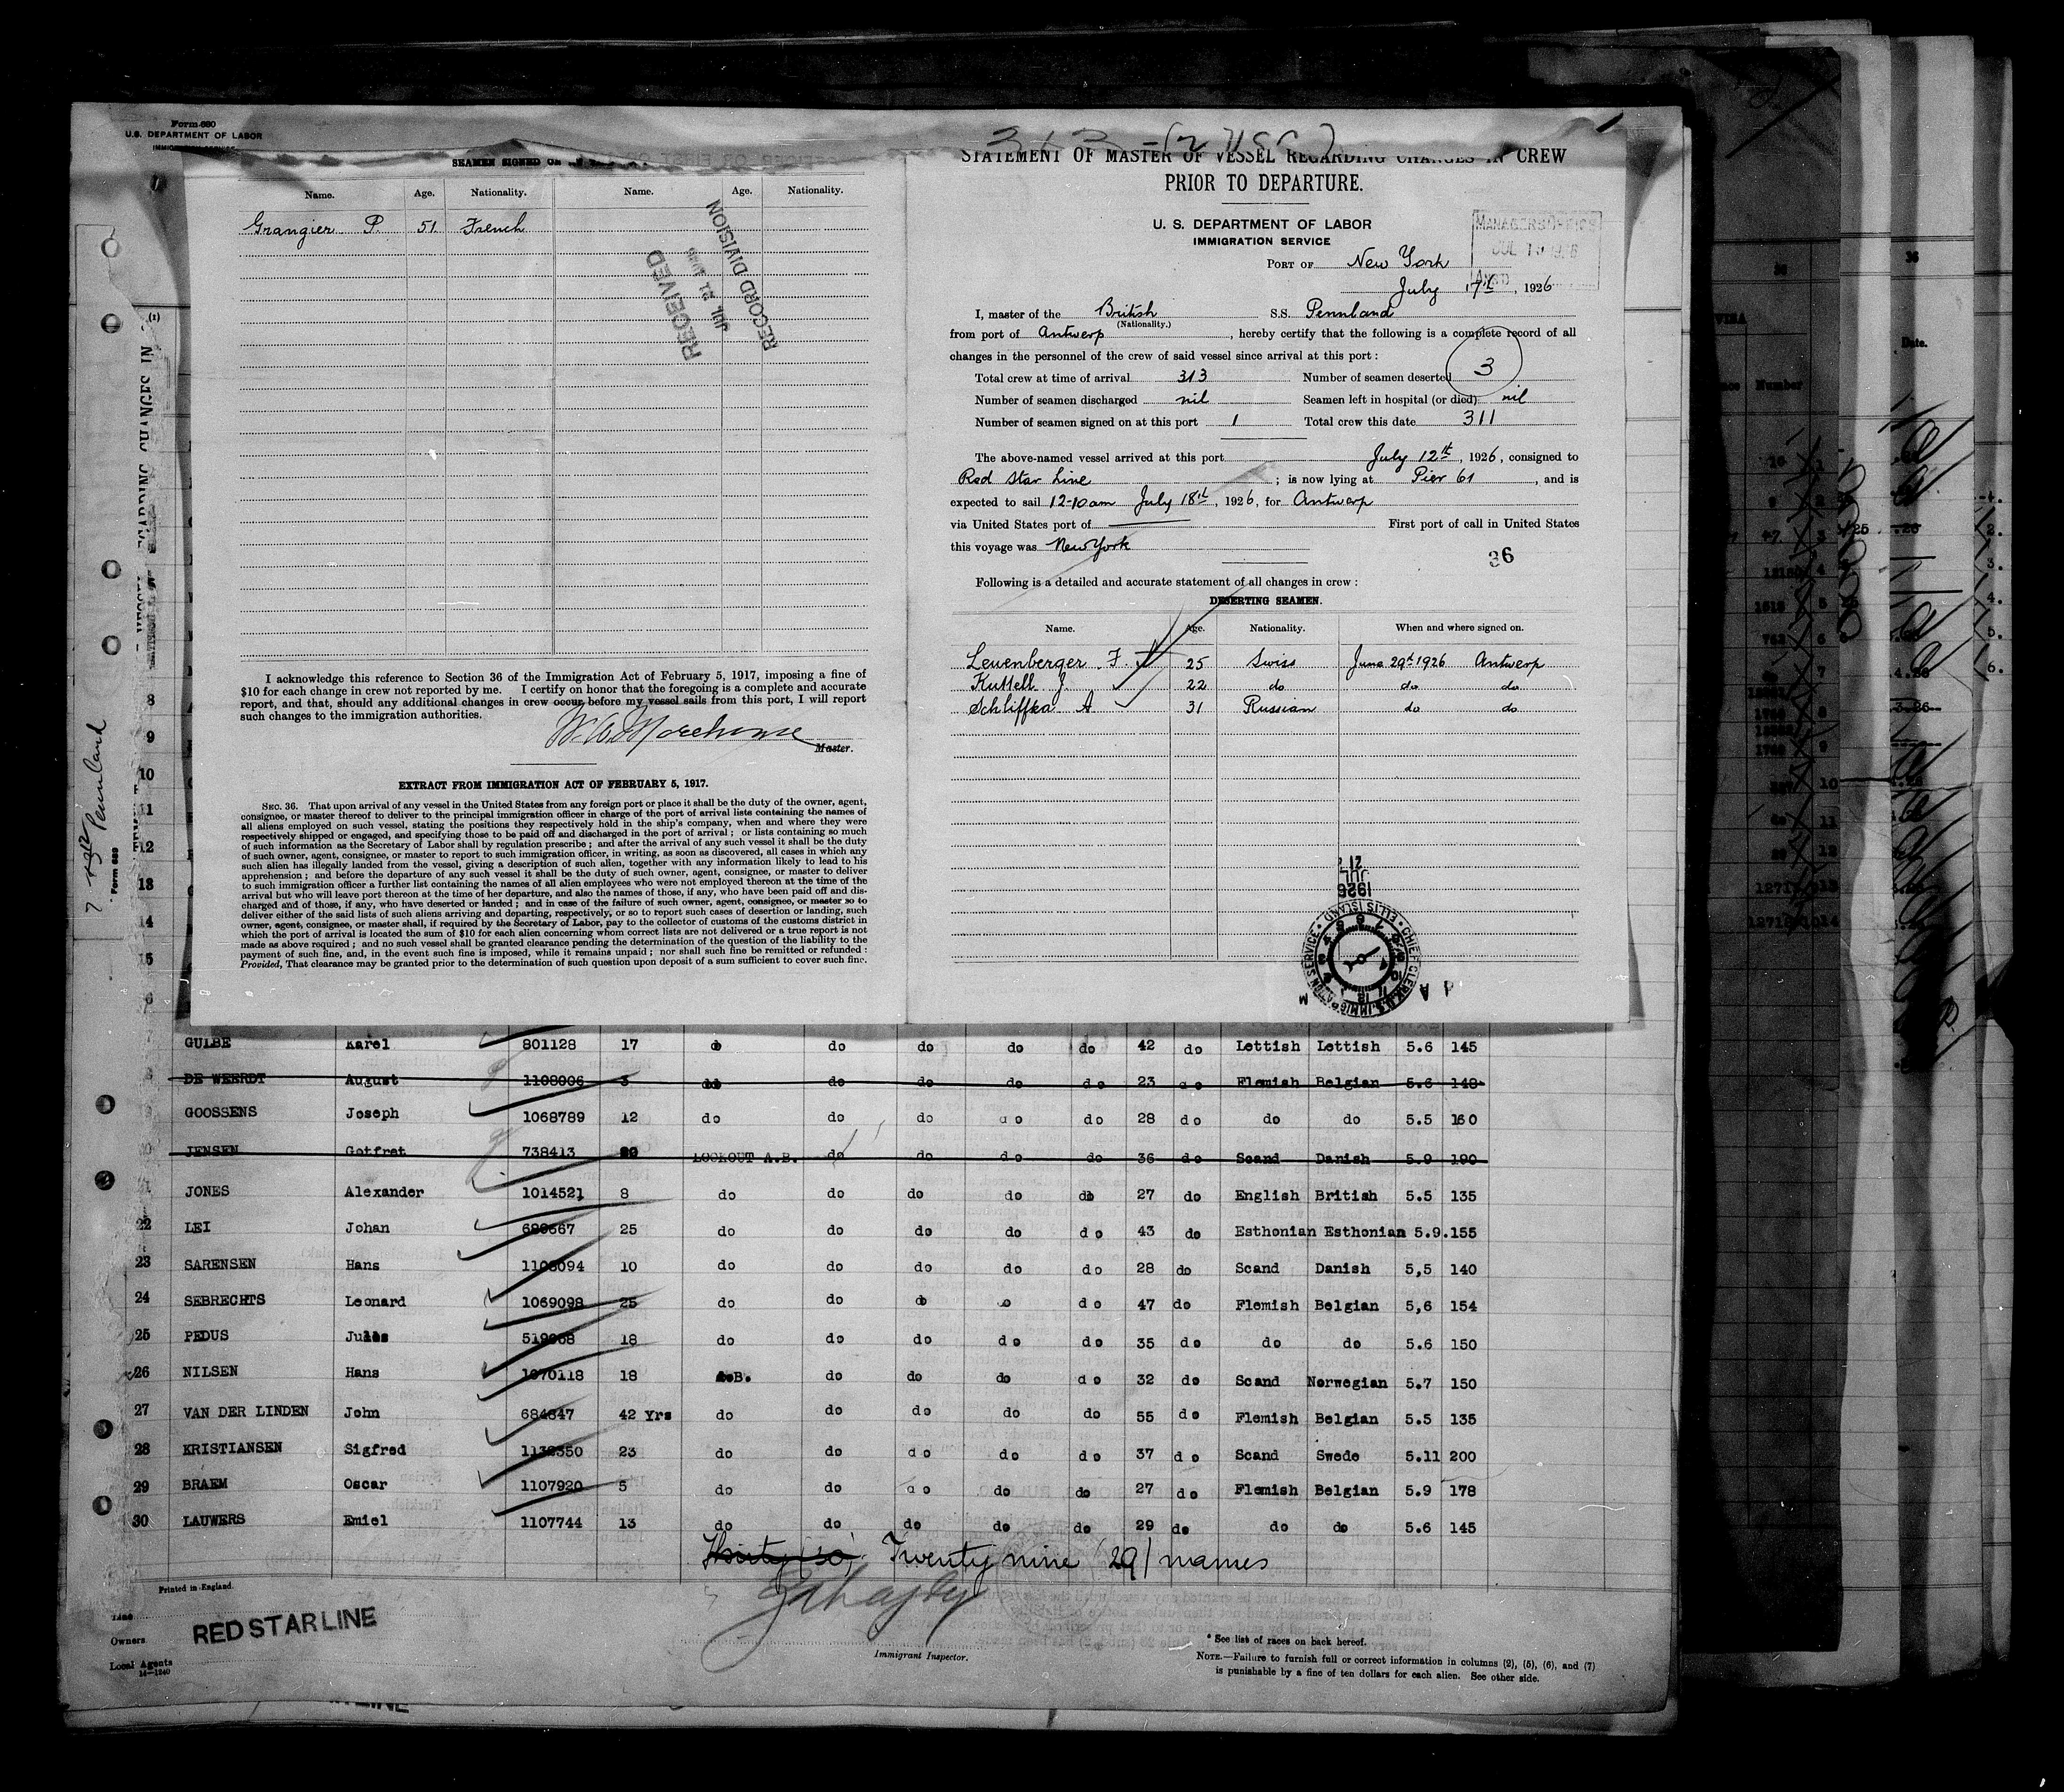 Form 680
U.S. DEPARTMENT OF LABOR
SEAMEN SIGNED
Name. Age. Nationality. Name. Age. Nationality.
Grangier P. 51 French
RECEIVED
JUL 21
RECORD DIVISION
I acknowledge this reference to Section 36 of the Immigration Act of February 5, 1917, imposing a fine of
$10 for each change in crew not reported by me. I certify on honor that the foregoing is a complete and accurate
report, and that, should any additional changes in crew occur before my vessel sails from this port, I will report
such changes to the immigration authorities.
Master.
EXTRACT FROM IMMIGRATION ACT OF FEBRUARY 5, 1917.
SEC. 36. That upon arrival of any vessel in the United States from any foreign port or place it shall be the duty of the owner, agent,
consignee, or master thereof to deliver to the principal immigration officer in charge of the port of arrival lists containing the names of
all aliens employed on such vessel, stating the positions they respectively hold in the ship's company, when and where they were
respectively shipped or engaged, and specifying those to be paid off and discharged in the port of arrival; or lists containing so much
of such information as the Secretary of Labor shall by regulation prescribe; and after the arrival of any such vessel it shall be the duty
of such owner, agent, consignee, or master to report to such immigration officer, in writing, as soon as discovered, all cases in which any
such alien has illegally landed from the vessel, giving a description of such alien, together with any information likely to lead to his
apprehension; and before the departure of any such vessel it shall be the duty of such owner, agent, consignee, or master to deliver
to such immigration officer a further list containing the names of all alien employees who were not employed thereon at the time of the
arrival but who will leave port thereon at the time of her departure, and also the names of those, if any, who have been paid off and dis-
charged and of those, if any, who have deserted or landed; and in case of the failure of such owner, agent, consignee, or master so to
deliver either of the said lists of such aliens arriving and departing, respectively, or so to report such cases of desertion or landing, such
owner, agent, consignee, or master shall, if required by the Secretary of Labor, pay to the collector of customs of the customs district in
which the port of arrival is located the sum of $10 for each alien concerning whom correct lists are not delivered or a true report is not
made as above required; and no such vessel shall be granted clearance pending the determination of the question of the liability to the
payment of such fine, and, in the event such fine is imposed, while it remains unpaid; nor shall such fine be remitted or refunded:
Provided, That clearance may be granted prior to the determination of such question upon deposit of a sum sufficient to cover such fine.
STATEMENT OF MASTER OF VESSEL REGARDING CHANGES IN CREW
PRIOR TO DEPARTURE.
U. S. DEPARTMENT OF LABOR
IMMIGRATION SERVICE
MANAGERS OFFICE
JUL 19 1926
PORT OF New York
July 17th, 1926
I, master of the British S.S. Pennland
(Nationality.)
from port of Antwerp, hereby certify that the following is a complete record of all
changes in the personnel of the crew of said vessel since arrival at this port:
Total crew at time of arrival 313 Number of seamen deserted 3
Number of seamen discharged nil Seamen left in hospital (or died) nil
Number of seamen signed on at this port 1 Total crew this date 311
The above-named vessel arrived at this port July 12th, 1926, consigned to
Red Star Line; is now lying at Pier 61, and is
expected to sail 12-10am July 18th, 1926, for Antwerp
via United States port of First port of call in United States
this voyage was New York
36
Following is a detailed and accurate statement of all changes in crew:
DESERTING SEAMEN.
Name. Age. Nationality. When and where signed on.
Leuenberger F. 25 Swiss June 29th 1926 Antwerp
Kuttell J. 22 do do do
Schliffka A 31 Russian do do
JUL 21 1926
CHIEF CLERK U.S. IMMIGRATION SERVICE ELLIS ISLAND
Pennland
GULBE Karel 801128 17 do do do do do 42 do Lettish Lettish 5.6 145
DE WEERDT August 1108006 3 do do do do do 23 do Flemish Belgian 5.6 148
GOOSSENS Joseph 1068789 12 do do do do do 28 do do do 5.5 160
JENSEN Gotfret 738413 LOOKOUT A.B. do do do do 36 do Scand Danish 5.9 190
JONES Alexander 1014521 8 do do do do do 27 do English British 5.5 135
22 LEI Johan 25 do do do do do 43 do Esthonian Esthonian 5.9.155
23 SARENSEN Hans 1108094 10 do do do do do 28 do Scand Danish 5,5 140
24 SEBRECHTS Leonard 1069098 25 do do do do 47 do Flemish Belgian 5,6 154
25 PEDUS Jules 18 do do do do do 35 do do do 5.6 150
26 NILSEN Hans 1070118 18 A.B. do do do do 32 do Scand Norwegian 5.7 150
27 VAN DER LINDEN John 684647 42 Yrs do do do do do 55 do Flemish Belgian 5.5 135
28 KRISTIANSEN Sigfred 23 do do do do do 37 do Scand Swede 5.11 200
29 BRAEM Oscar 1107920 5 do do do do do 27 do Flemish Belgian 5.9 178
30 LAUWERS Emiel 1107744 13 do do do do do 29 do do do 5.6 145
Thirty (30) Twenty nine (29) names
Printed in England.
Line
Owners RED STAR LINE
Local Agents
14-1240
Immigrant Inspector.
* See list of races on back hereof.
NOTE.—Failure to furnish full or correct information in columns (2), (5), (6), and (7)
is punishable by a fine of ten dollars for each alien. See other side.